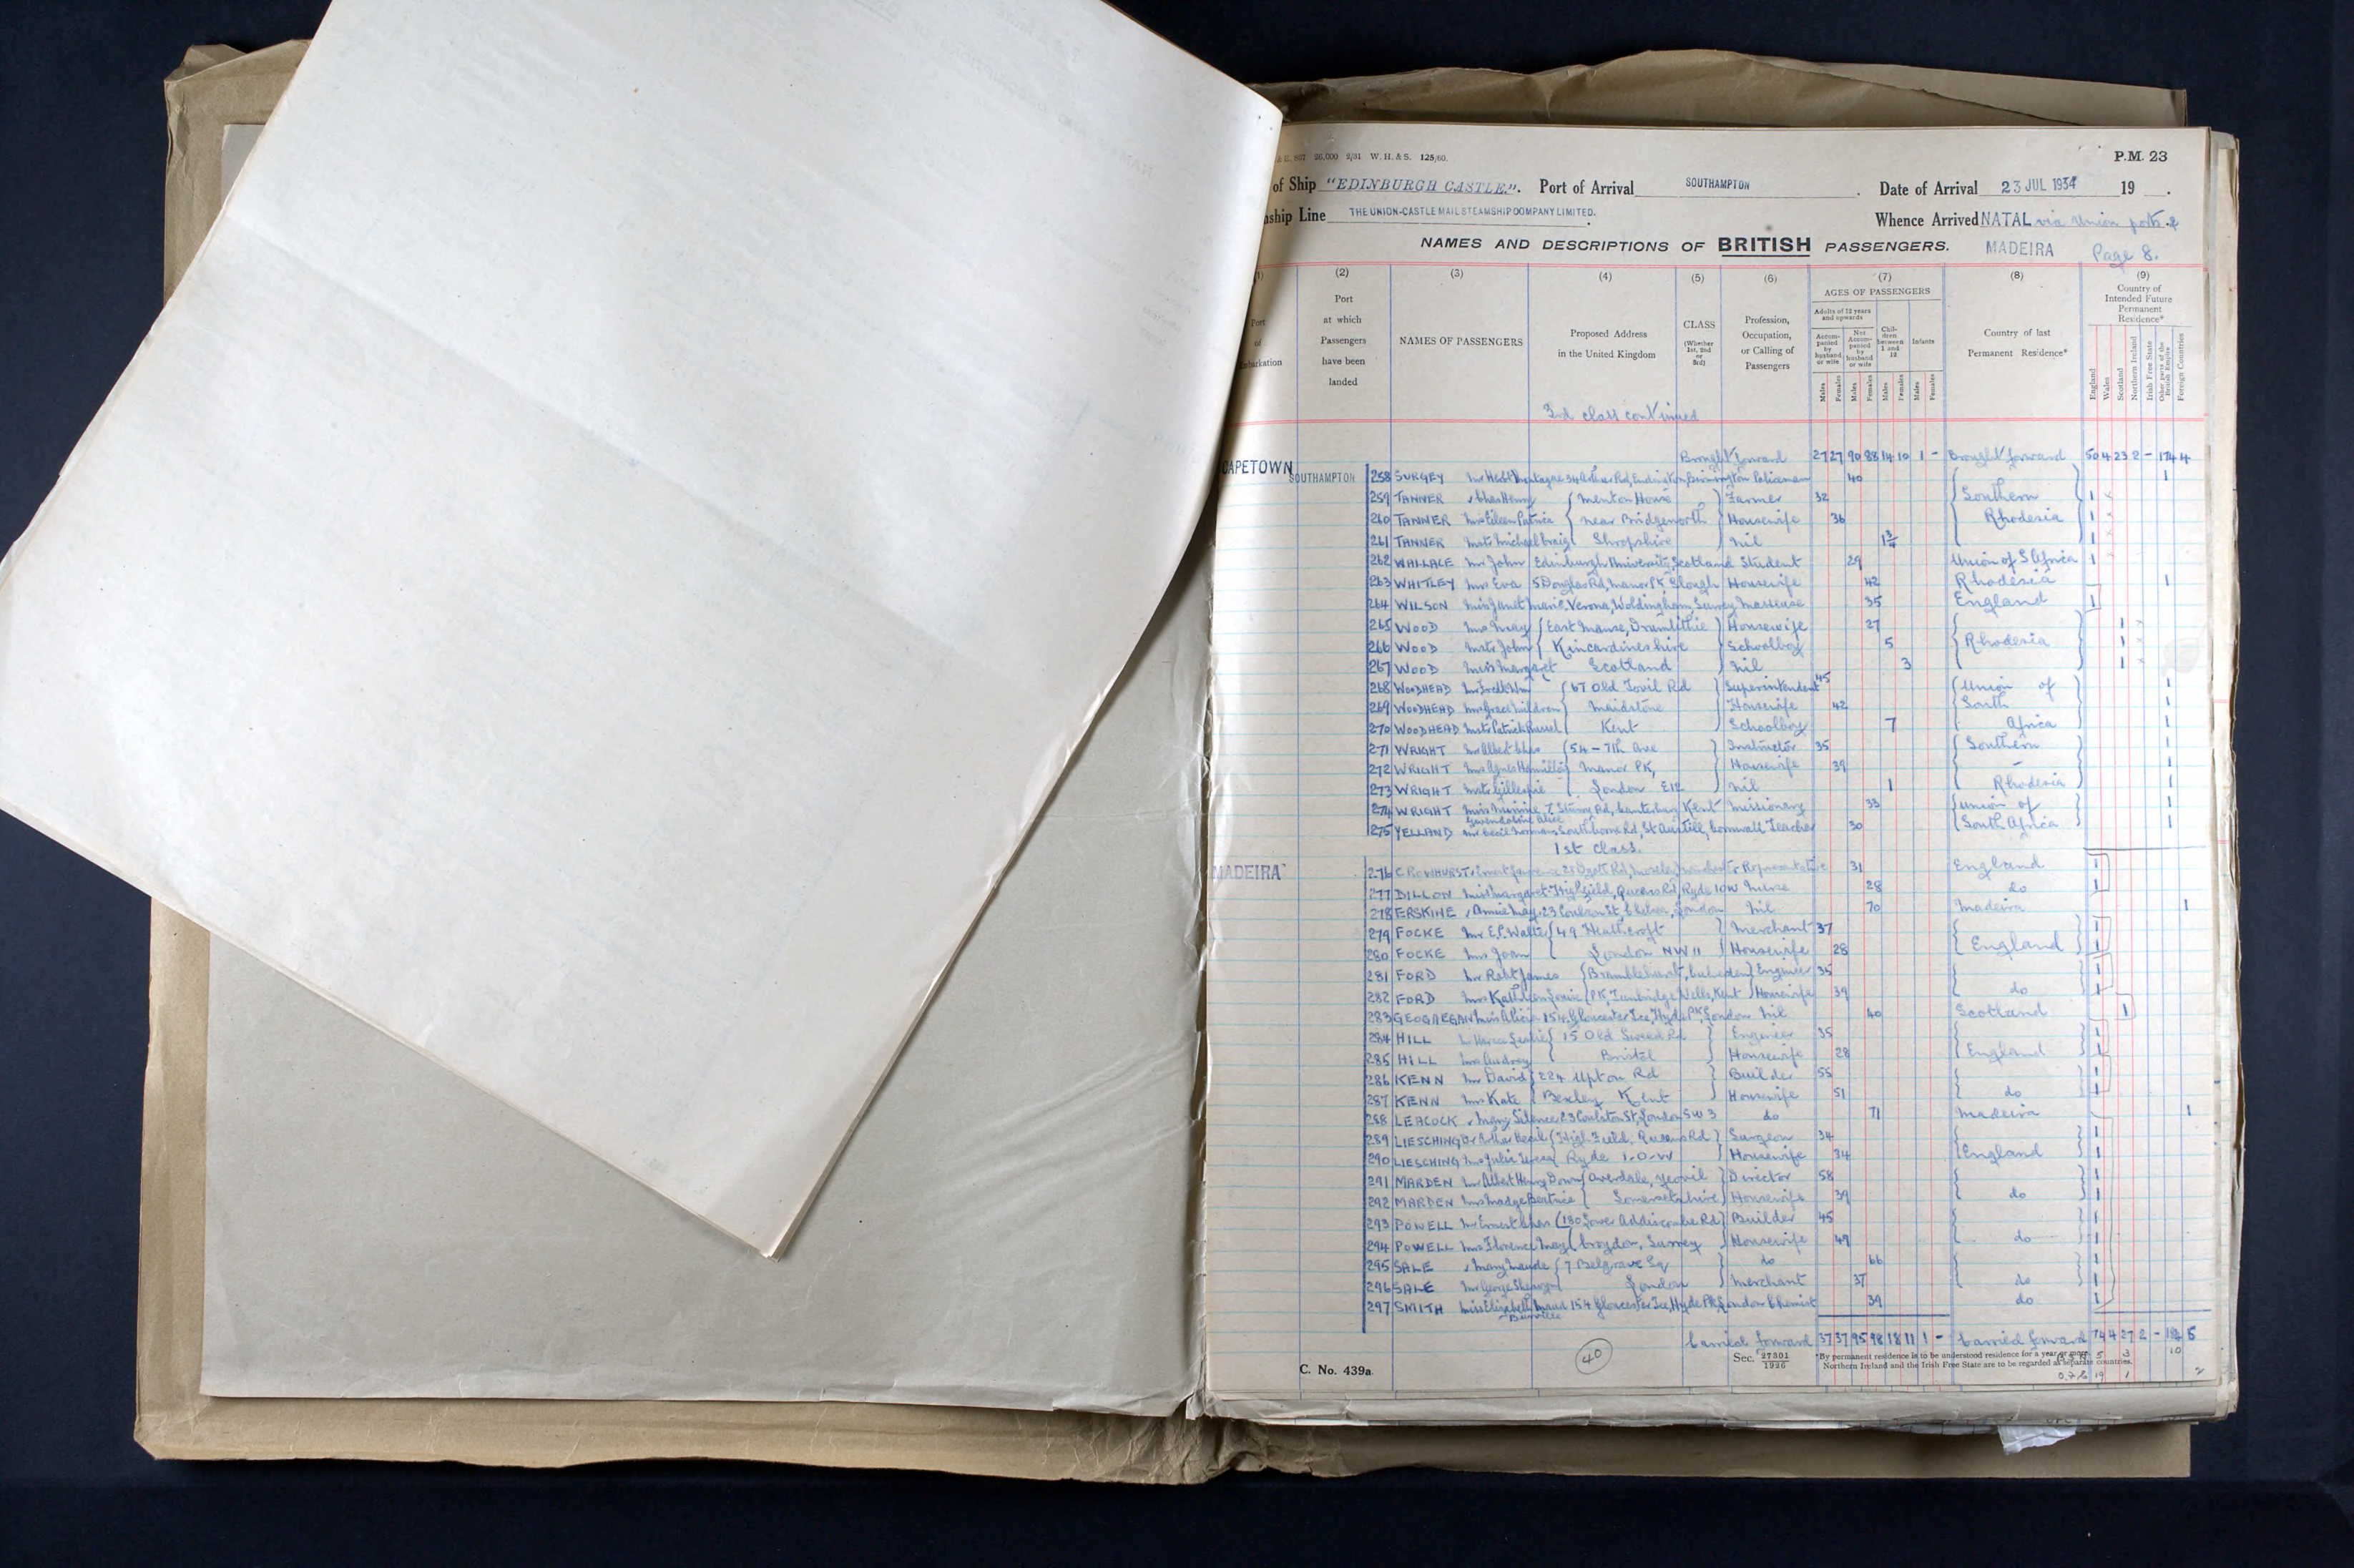 26,000 2/31 W. H. & S. 125/60.
P.M. 23
of Ship "EDINBURGH CASTLE". Port of Arrival SOUTHAMPTON. Date of Arrival 23 JUL 1934 19 .
ship Line THE UNION-CASTLE MAIL STEAMSHIP COMPANY LIMITED. Whence Arrived NATAL via Union ports &
NAMES AND DESCRIPTIONS OF BRITISH PASSENGERS. MADEIRA Page 8.
(2) (3) (4) (5) (6) (7) (8) (9)
Port of Embarkation
Port at which Passengers have been landed
NAMES OF PASSENGERS
Proposed Address in the United Kingdom
CLASS (Whether 1st, 2nd or 3rd)
Profession, Occupation, or Calling of Passengers
AGES OF PASSENGERS
Adults of 12 years and upwards
Accompanied by husband or wife
Not Accompanied by husband or wife
Children between 1 and 12
Infants
Males Females Males Females Males Females Males Females
Country of last Permanent Residence*
Country of Intended Future Permanent Residence*
England Wales Scotland Northern Ireland Irish Free State Other parts of the British Empire Foreign Countries
3rd class continued
Brought forward 27 27 90 88 14 10 1 - Brought forward 50 4 23 2 - 174 4
CAPETOWN SOUTHAMPTON 258 SURGEY Policeman 40 1
259 TANNER Menton House Farmer 32 Southern 1
260 TANNER Mrs Eileen Patricia near Bridgenorth Housewife 36 Rhodesia 1
261 TANNER Mstr Michael Craig Shropshire Nil 1¾ 1
262 WALLACE Mr John Edinburgh University, Scotland Student 29 Union of S Africa 1
263 WHITLEY Mrs Eva 5 Douglas Rd, Manor Pk, Slough Housewife 42 Rhodesia 1
264 WILSON Miss Janet Marie Verona, Woldingham, Surrey Masseuse 35 England 1
265 WOOD Mrs May East Manse, Drumlithie Housewife 27 1
266 WOOD Mstr John Kincardineshire Schoolboy 5 Rhodesia 1
267 WOOD Miss Margaret Scotland Nil 3 1
268 WOODHEAD Mr Fredk Wm 67 Old Tovil Rd Superintendent 45 Union of 1
269 WOODHEAD Mrs Grace Maidstone Housewife 42 South 1
270 WOODHEAD Mstr Patrick Kent Schoolboy 7 Africa 1
271 WRIGHT Mr Albert Chas 54 - 7th Ave Instructor 35 Southern 1
272 WRIGHT Mrs Agnes Hamilton Manor Pk, Housewife 39 - 1
273 WRIGHT Mstr Gillespie London E12 Nil 1 Rhodesia 1
274 WRIGHT Miss 7 Sturry Rd, Canterbury Kent Missionary 33 Union of 1
Gwendoline Alice
275 YELLAND Mr Cecil Norman Southbourne Rd, St Austell, Cornwall Teacher 30 South Africa 1
1st Class.
MADEIRA 276 CROWHURST Representative 31 England 1
277 DILLON Miss Margaret Highfield, Queens Rd, Ryde IOW Nurse 28 do 1
278 ERSKINE Annie May 23 Coulson St, Chelsea, London Nil 70 Madeira 1
279 FOCKE Mr E.P. Walter 49 Heathcroft Merchant 37 1
280 FOCKE Mrs Joan London NW11 Housewife 28 England 1
281 FORD Mr Robt James Engineer 35 1
282 FORD Mrs Kathleen Louise Pk, Tunbridge Wells, Kent Housewife 39 do 1
283 GEOGHEGAN Miss Alicia 154 Gloucester Tce, Hyde Pk, London Nil 40 Scotland 1
284 HILL 15 Old Sneed Rd Engineer 35 1
285 HILL Mrs Audrey Bristol Housewife 28 England 1
286 KENN Mr David 224 Upton Rd Builder 55 1
287 KENN Mrs Kate Bexley Kent Housewife 51 do 1
288 LEACOCK Mary 23 Coulston St, London SW3 do 71 Madeira 1
289 LIESCHING Dr Arthur Highfield, Queens Rd Surgeon 34 1
290 LIESCHING Mrs Julia Ryde I.O.W Housewife 34 England 1
291 MARDEN Mr Albert Henry Down Averdale, Yeovil Director 58 1
292 MARDEN Mrs Madge Beatrice Somersetshire Housewife 39 do 1
293 POWELL Mr Ernest Chas 180 Lower Addiscombe Rd Builder 45 1
294 POWELL Mrs Florence May Croydon, Surrey Housewife 49 do 1
295 SALE Mary Maude 7 Belgrave Sq do 66 1
296 SALE Mr George London Merchant 37 do 1
297 SMITH Miss Elizabeth Maud 154 Gloucester Tce, Hyde Pk, London Chemist 39 do 1
Carried forward 37 37 95 98 18 11 1 - Carried forward 74 4 27 2 - 5
40
C. No. 439a.
Sec. 27301/1926
*By permanent residence is to be understood residence for a year or more.
Northern Ireland and the Irish Free State are to be regarded as separate countries.